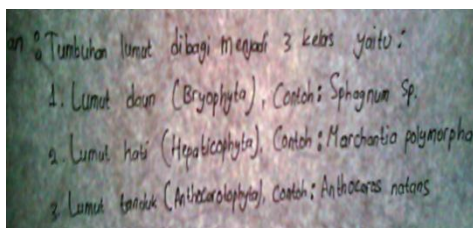 an : Tumbuhan lumut dibagi menjadi 3 kelas yaitu :
1. Lumut daun (Bryophyta), Contoh : Sphagnum Sp.
2. Lumut hati (Hepaticophyta), Contoh : Marchantia polymorpha
3. Lumut tanduk (Anthocerotophyta), Contoh : Anthoceros natans